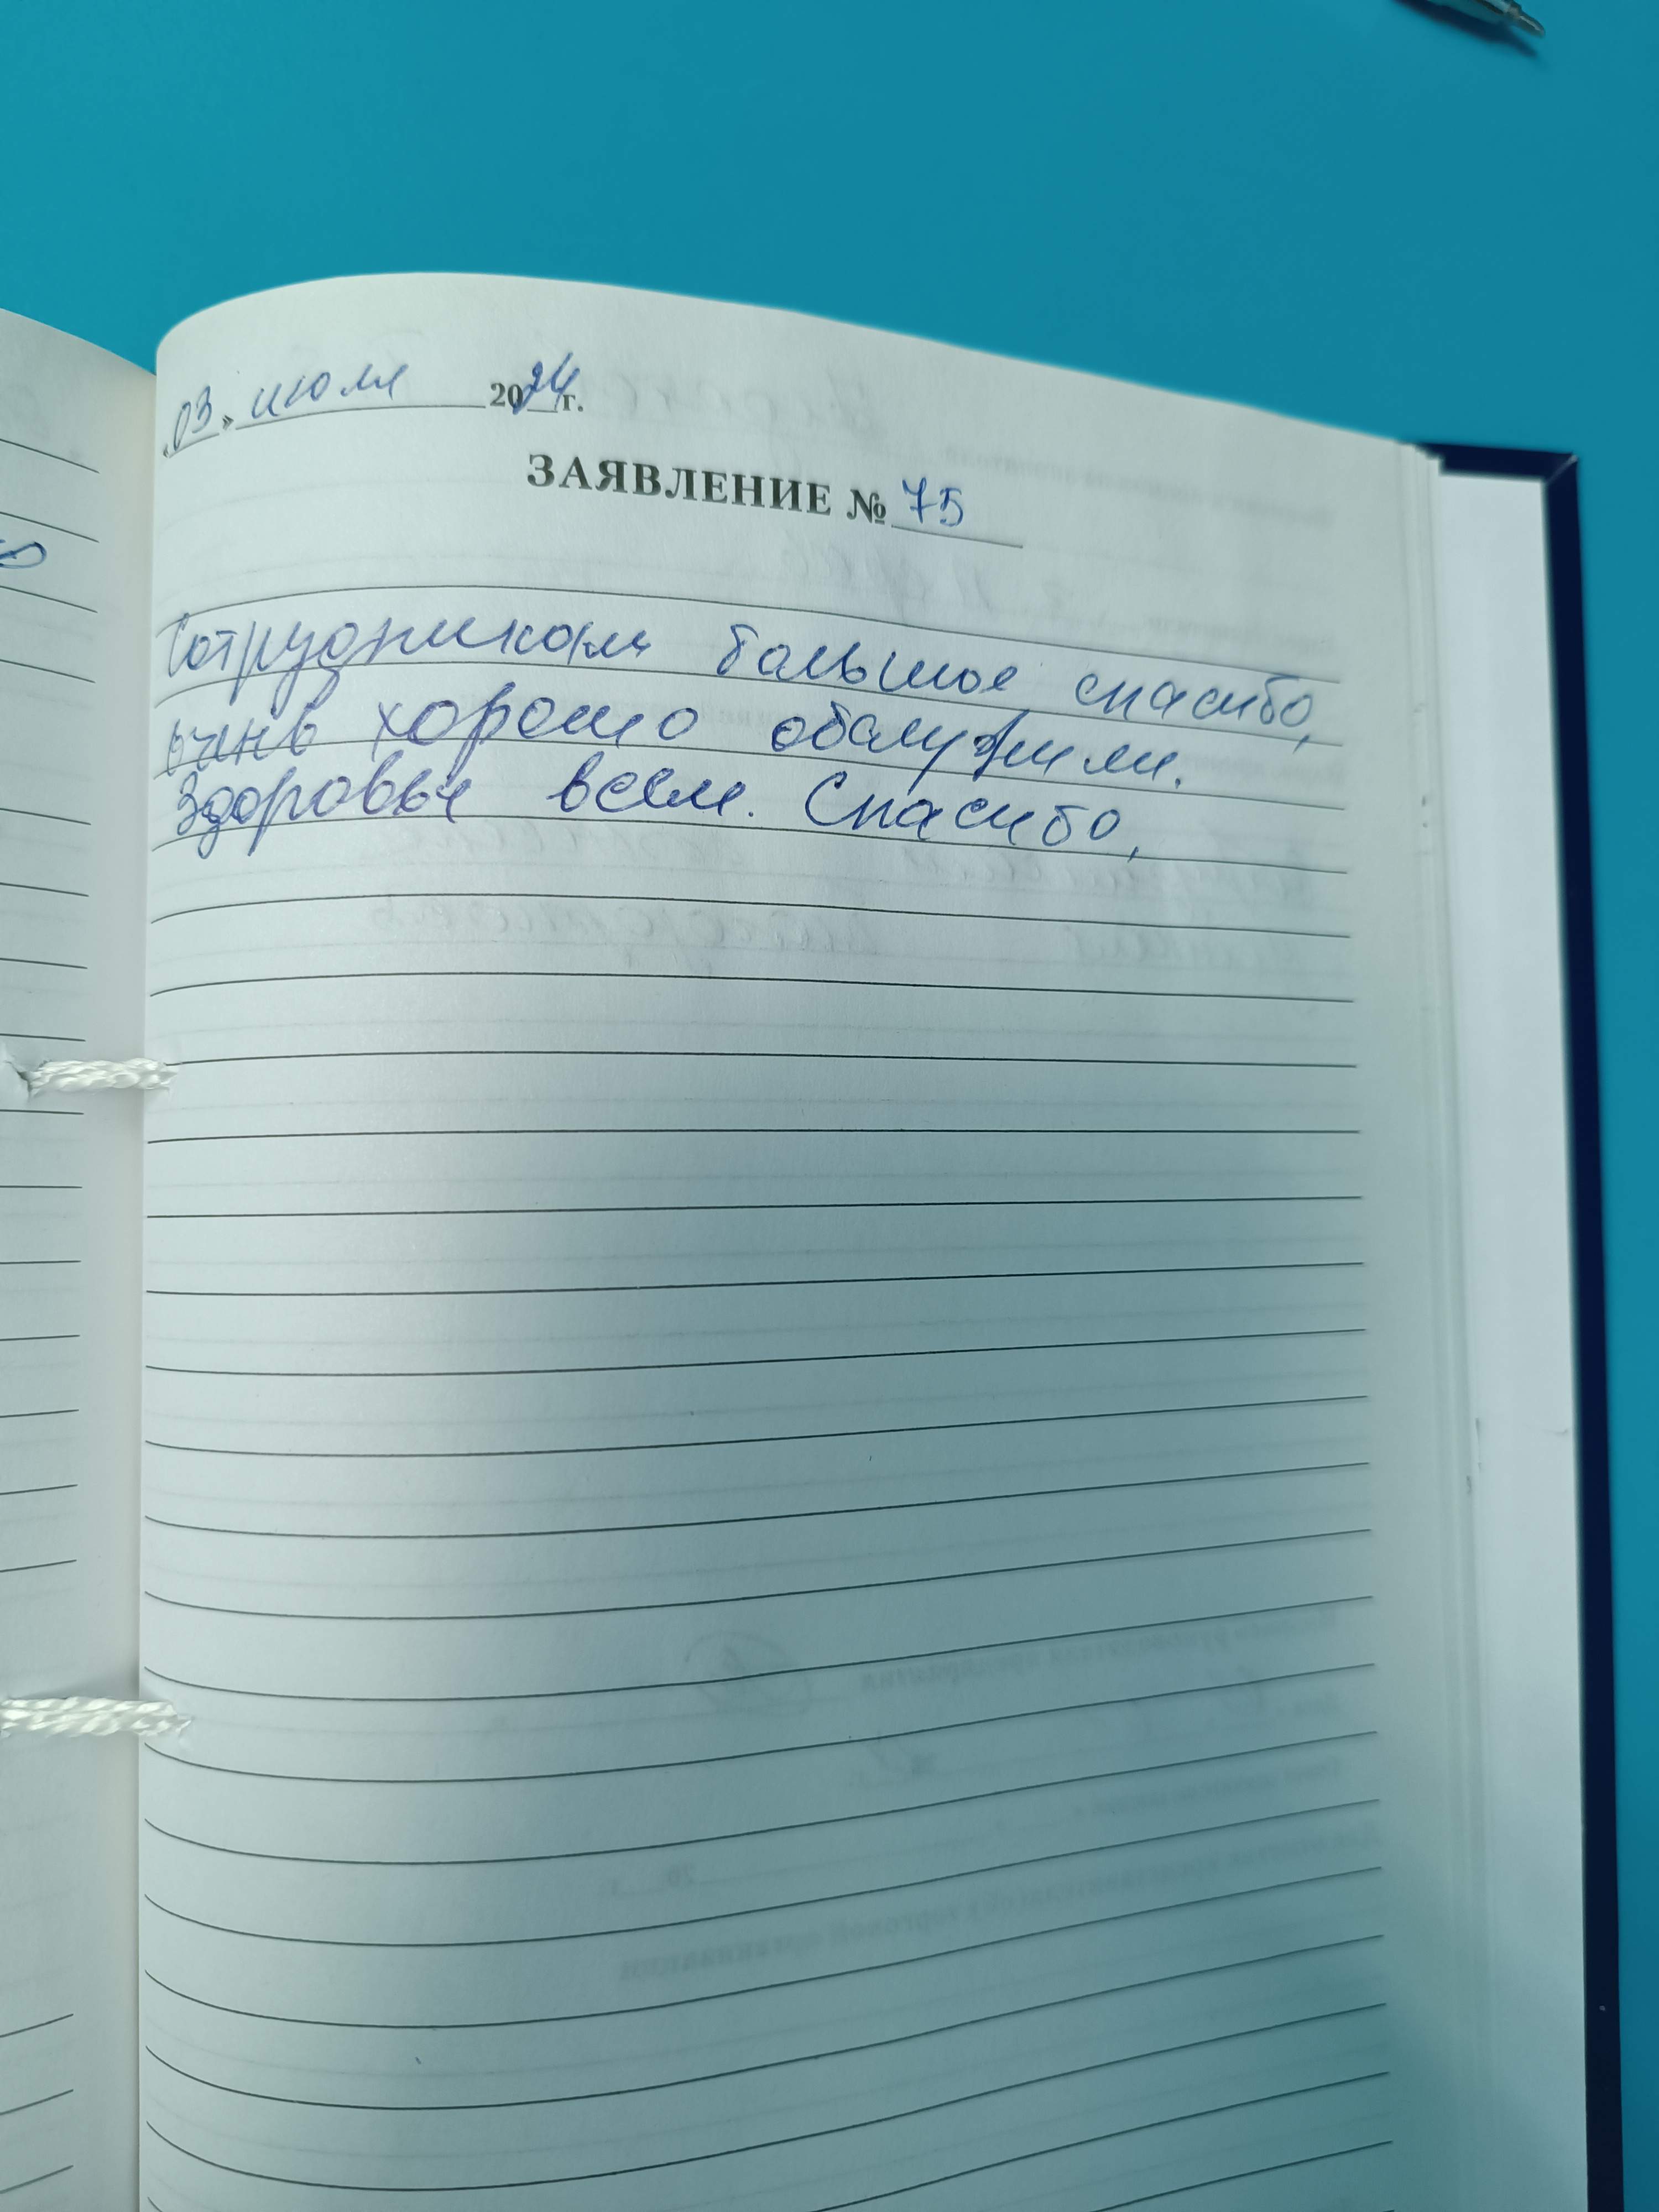 «03» июля 2024г.
ЗАЯВЛЕНИЕ № 75
Сотрудникам большое спасибо,
очень хорошо обслужили.
Здоровья всем. Спасибо,